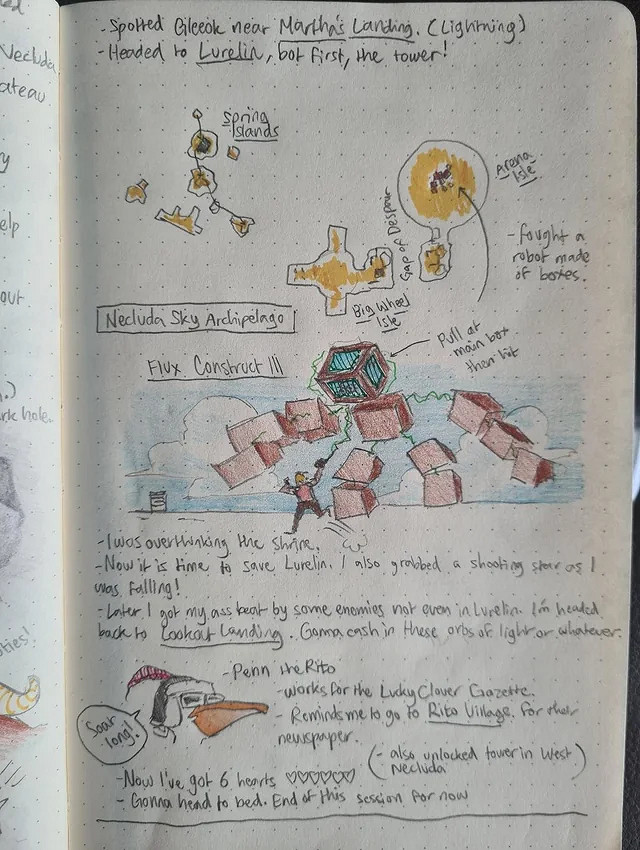 - Spotted Gleeok near Martha's Landing. (Lightning)
- Headed to Lurelin, but first, the tower!
Necluda
ateau
ry
elp
out
.)
ark hole.
oties!
Spring
Islands
Arena
Isle
Gap of Despair
- fought a
robot made
of boxes.
Big Wheel
Isle
Necluda Sky Archipelago
Pull at
main box
then hit
Flux Construct III
- I was overthinking the shrine.
- Now it is time to save Lurelin. I also grabbed a shooting star as I
was falling!
- Later I got my ass beat by some enemies not even in Lurelin. I'm headed
back to Lookout Landing. Gonna cash in these orbs of light or whatever.
- Penn the Rito
- works for the Lucky Clover Gazette.
- Reminds me to go to Rito Village. For their
newspaper.
Soar
long!
(- also unlocked tower in West
Necluda)
- Now I've got 6 hearts ♡♡♡♡♡♡
- Gonna head to bed. End of this session for now